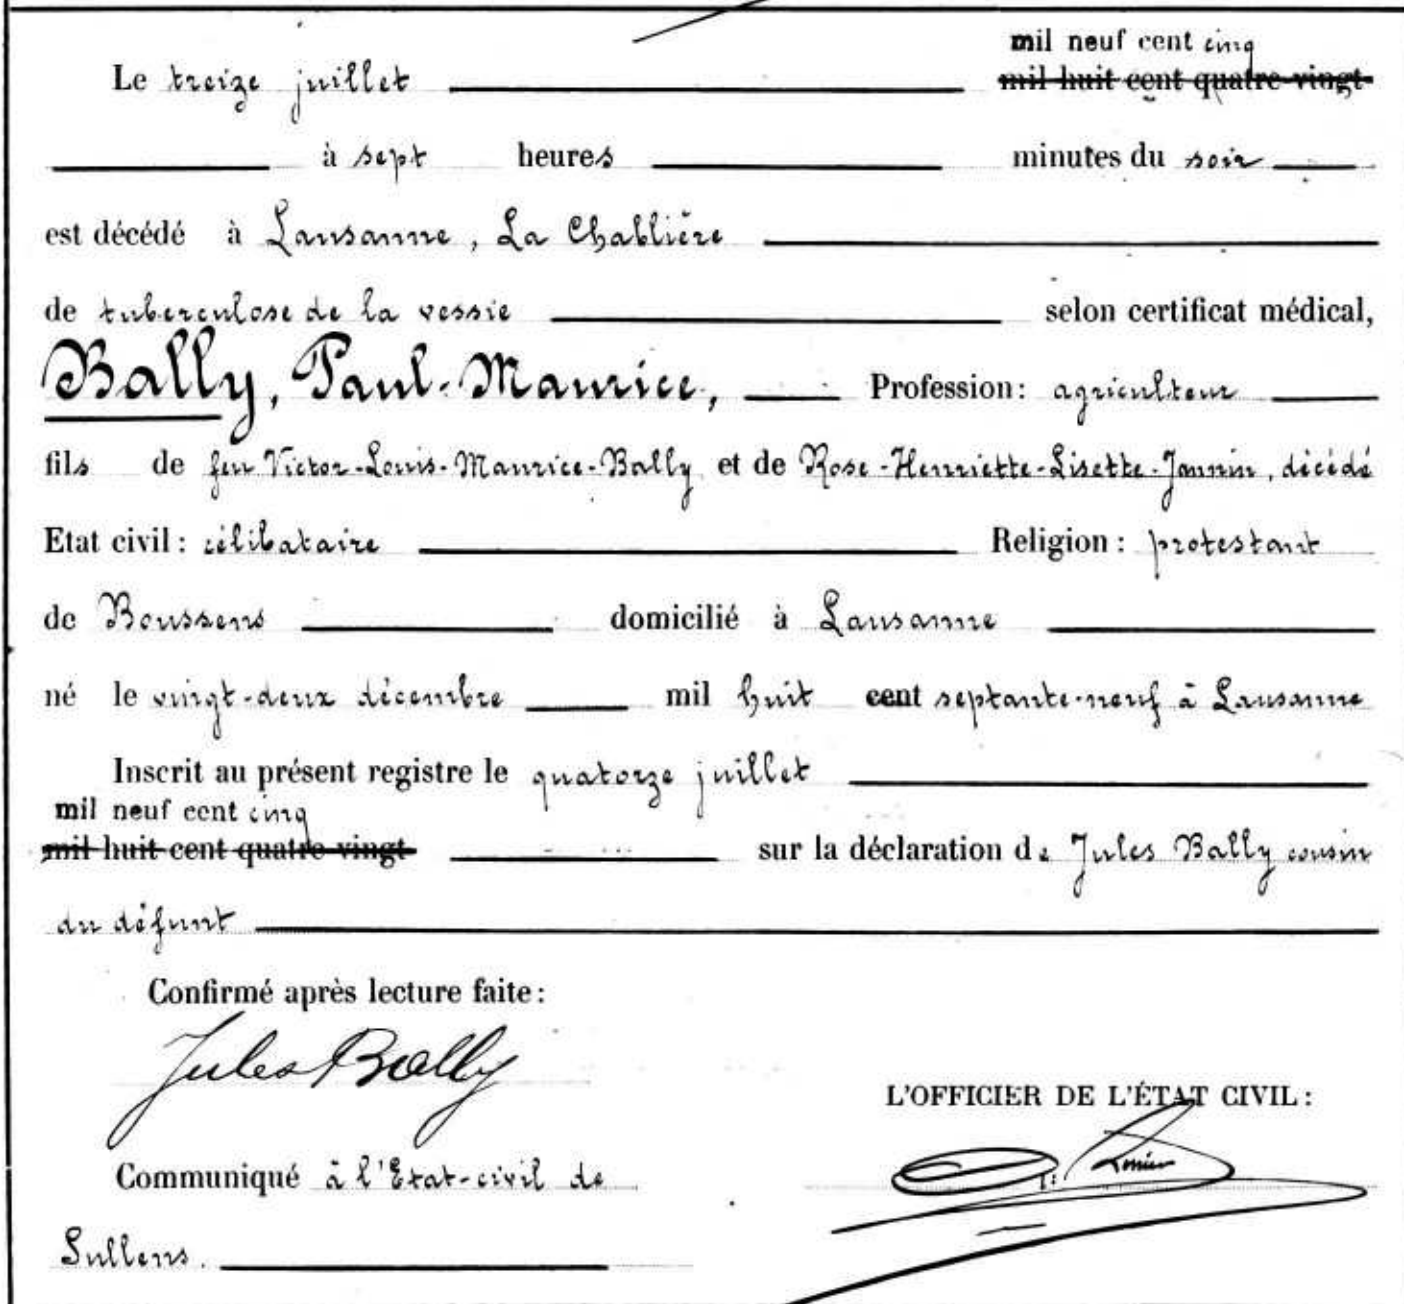 mil neuf cent cinq
Le treize juillet mil huit cent quatre-vingt
à sept heures minutes du soir
est décédé à Lausanne, La Chablière
de tuberculose de la vessie selon certificat médical,
Bally, Paul-Maurice, Profession: agriculteur
fils de feu Victor-Louis-Maurice-Bally et de Rose-Henriette-Lisette-Jannin, décédé
Etat civil: célibataire Religion: protestant
de Boussens domicilié à Lausanne
né le vingt-deux décembre mil huit cent septante-neuf à Lausanne
Inscrit au présent registre le quatorze juillet
mil neuf cent cinq
mil huit cent quatre-vingt sur la déclaration de Jules Bally cousin
du défunt
Confirmé après lecture faite:
Jules Bally
L'OFFICIER DE L'ÉTAT CIVIL:
Communiqué à l'Etat-civil de
Sullens.